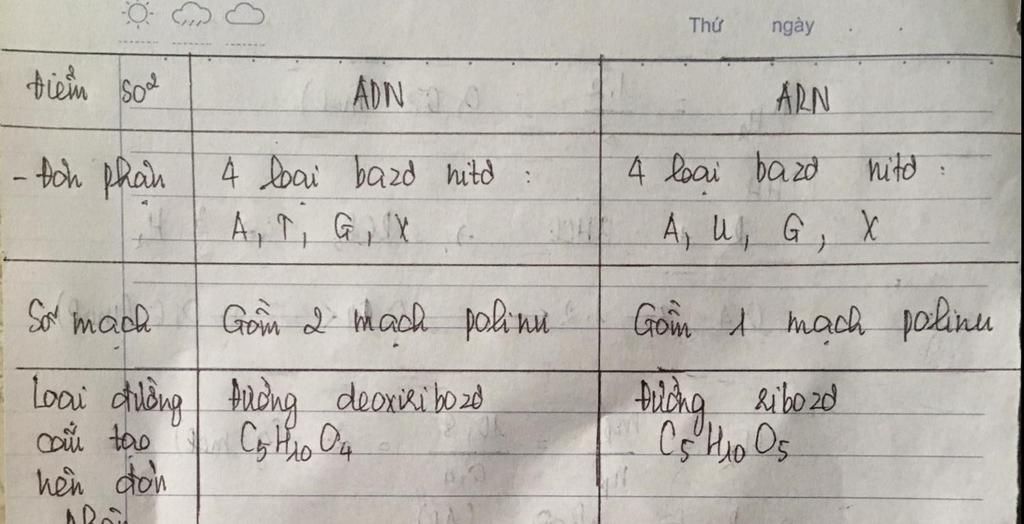 Thứ ngày
Điểm so² ADN ARN
- Đơn phân 4 loại bazơ nitơ : 4 loại bazơ nitơ :
A, T, G, X A, U, G, X
Số mạch Gồm 2 mạch polinu Gồm 1 mạch polinu
Loại đường Đường deoxiribozơ Đường ribozơ
cấu tạo C₅H₁₀O₄ C₅H₁₀O₅
nên đơn
phân